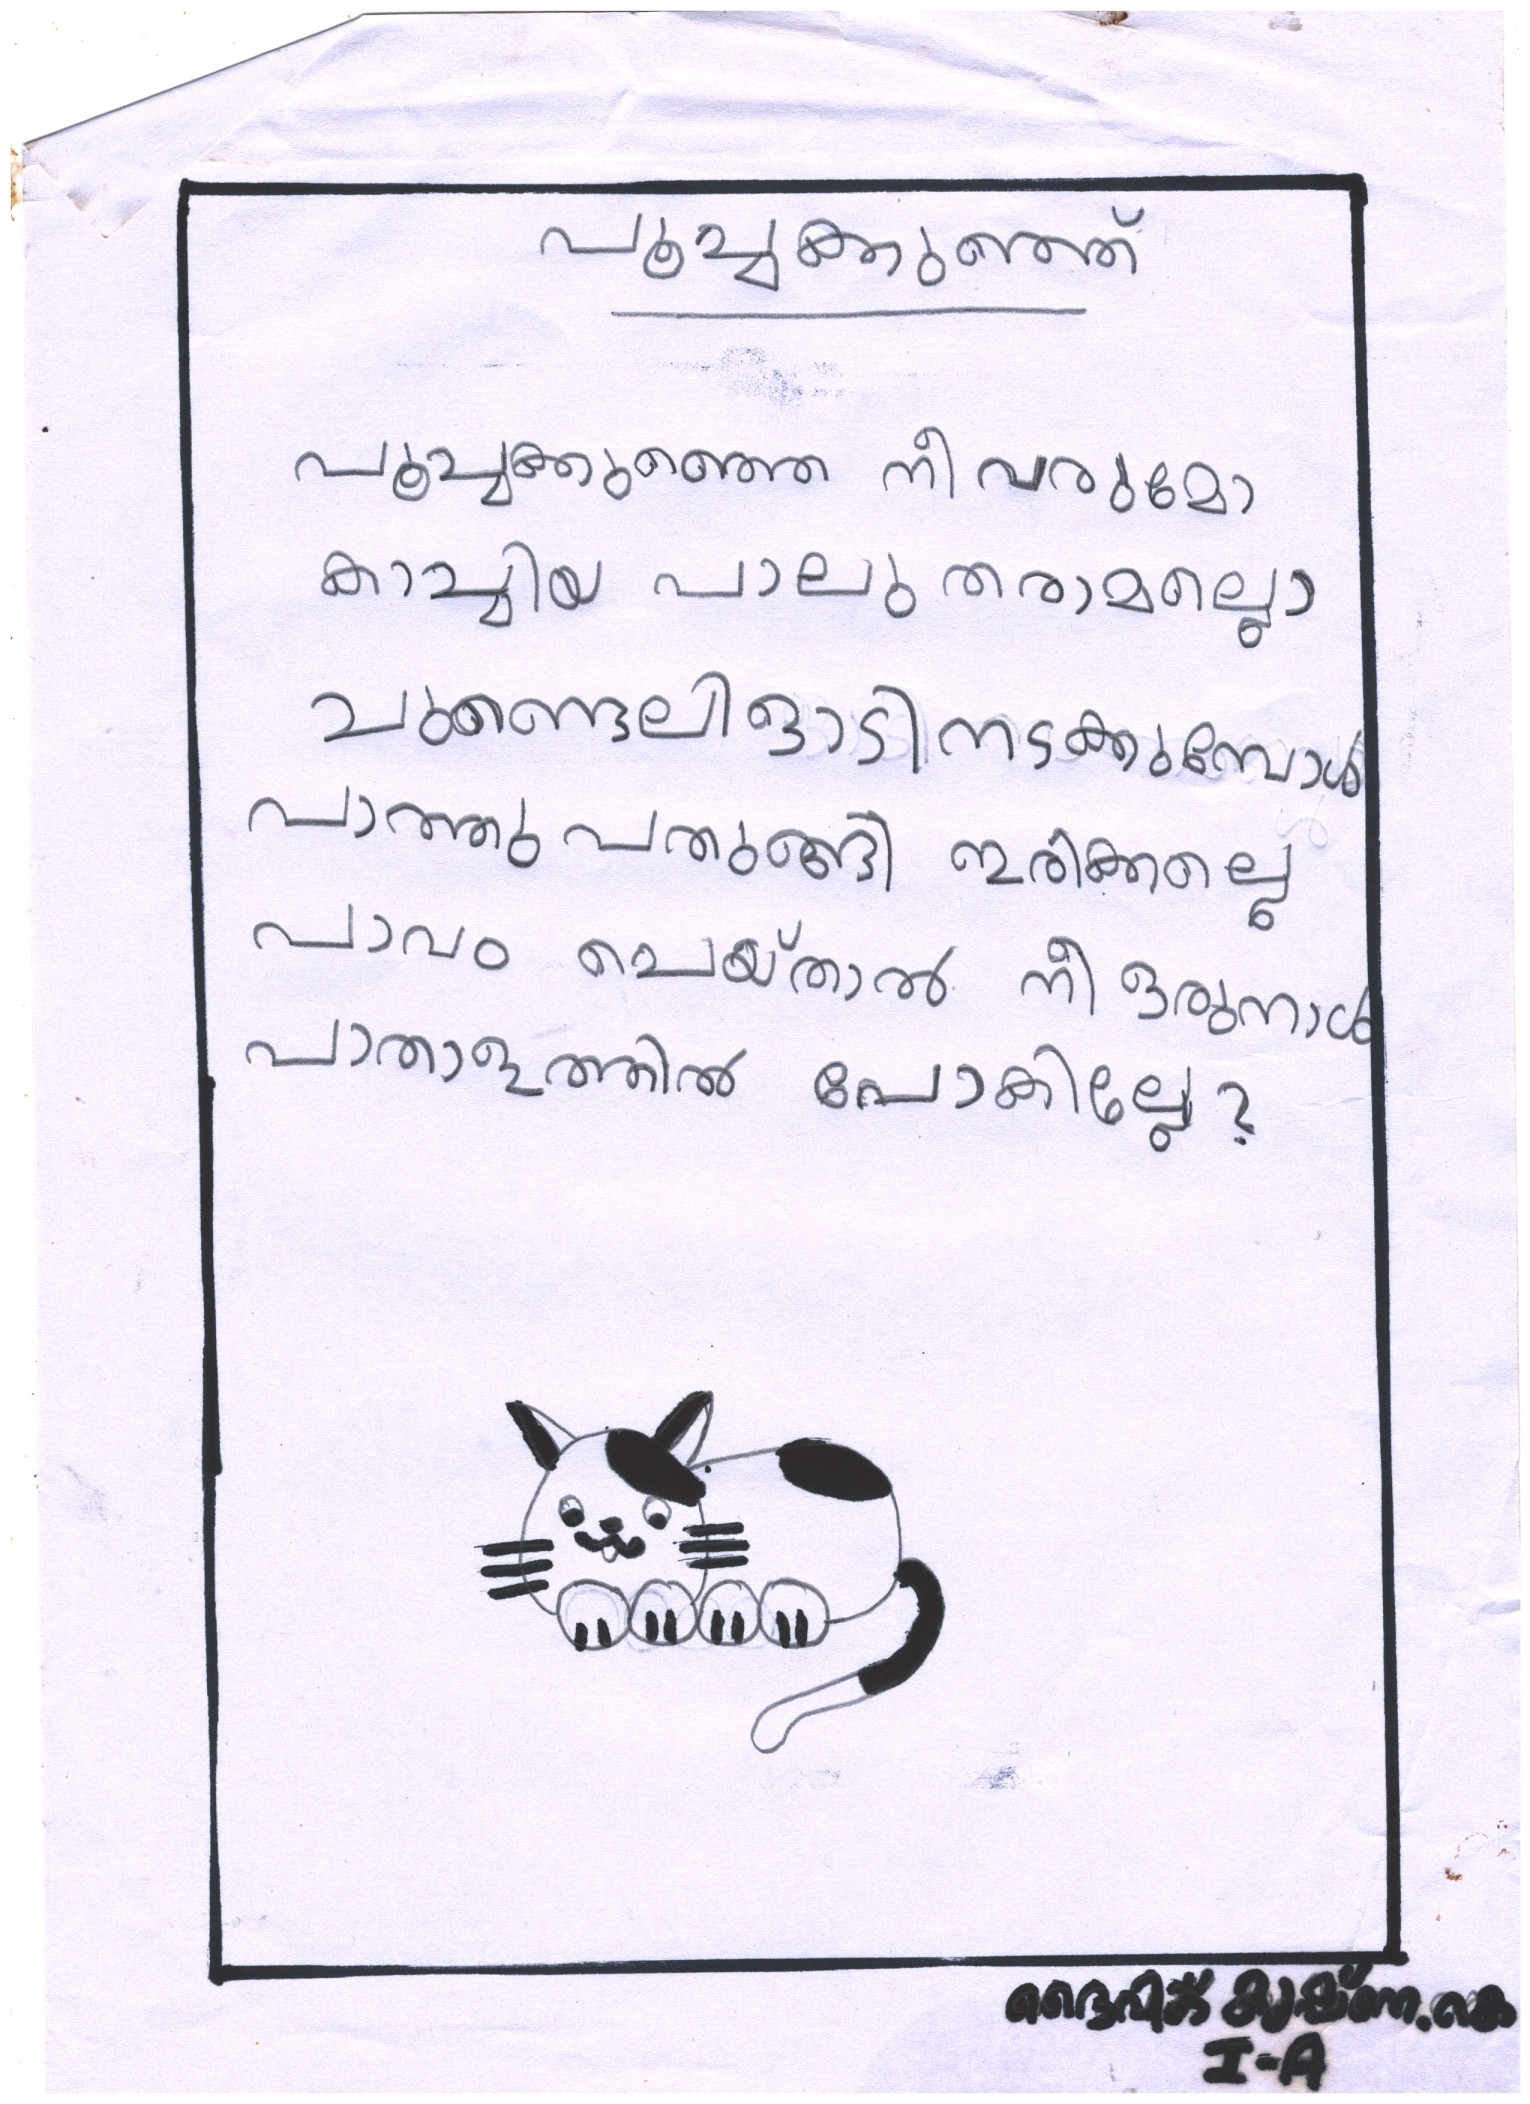 പൂച്ചക്കുഞ്ഞ്
പൂച്ചക്കുഞ്ഞെ നീ വരുമോ
കാച്ചിയ പാലു തരാമല്ലൊ
ചുണ്ടെലി ഓടി നടക്കുമ്പോൾ
പാത്തു പതുങ്ങി ഇരിക്കല്ലെ
പാവം ചെയ്താൽ നീ ഒരുനാൾ
പാതാളത്തിൽ പോകില്ലേ?
കൃഷ്ണ. കെ
I-A